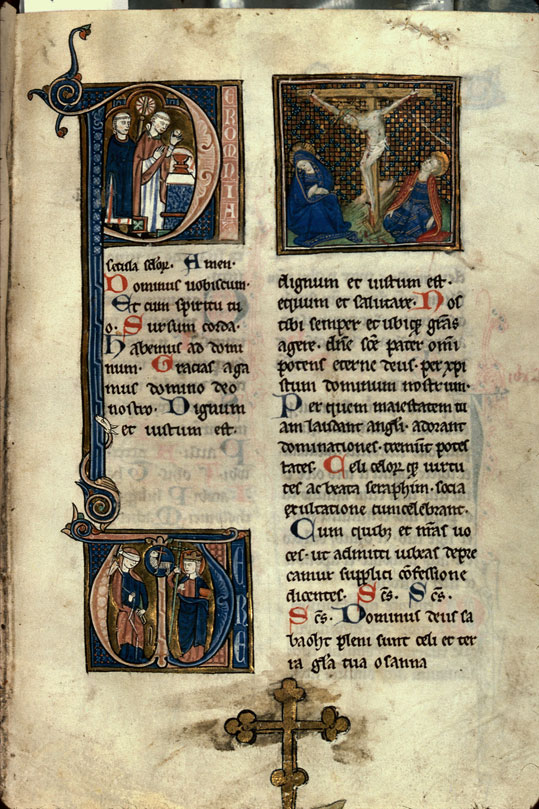 PEROMNIA
secula selorꝝ. Amen.
Dominus uobiscum.
Et cum spiritu tu
o. Sursum corda.
Habemus ad domi
num. Gracias aga
mus domino deo
nostro. Dignum
et iustum est.
UERE
dignum et iustum est.
equum et salutare. Nos
tibi semper et ubiqꝫ grãs
agere. dñe sc̃e pater omi
potens eterne deus. per xp̃i
stum dominum nostrum.
Per quem maiestatem tu
am laudant angli. adorant
dominationes. tremũt potes
tates. Celi celorꝝ qꝫ uirtu
tes ac beata seraphim. socia
exultatione concelebrant.
Cum quibꝫ et nr̃as uo
ces. ut admitti iubeas depre
camur supplici cõfessione
dicentes. Sc̃s. Sc̃s.
Sc̃s. Dominus deus sa
baoht pleni sunt celi et ter
ra gl̃a tua osanna